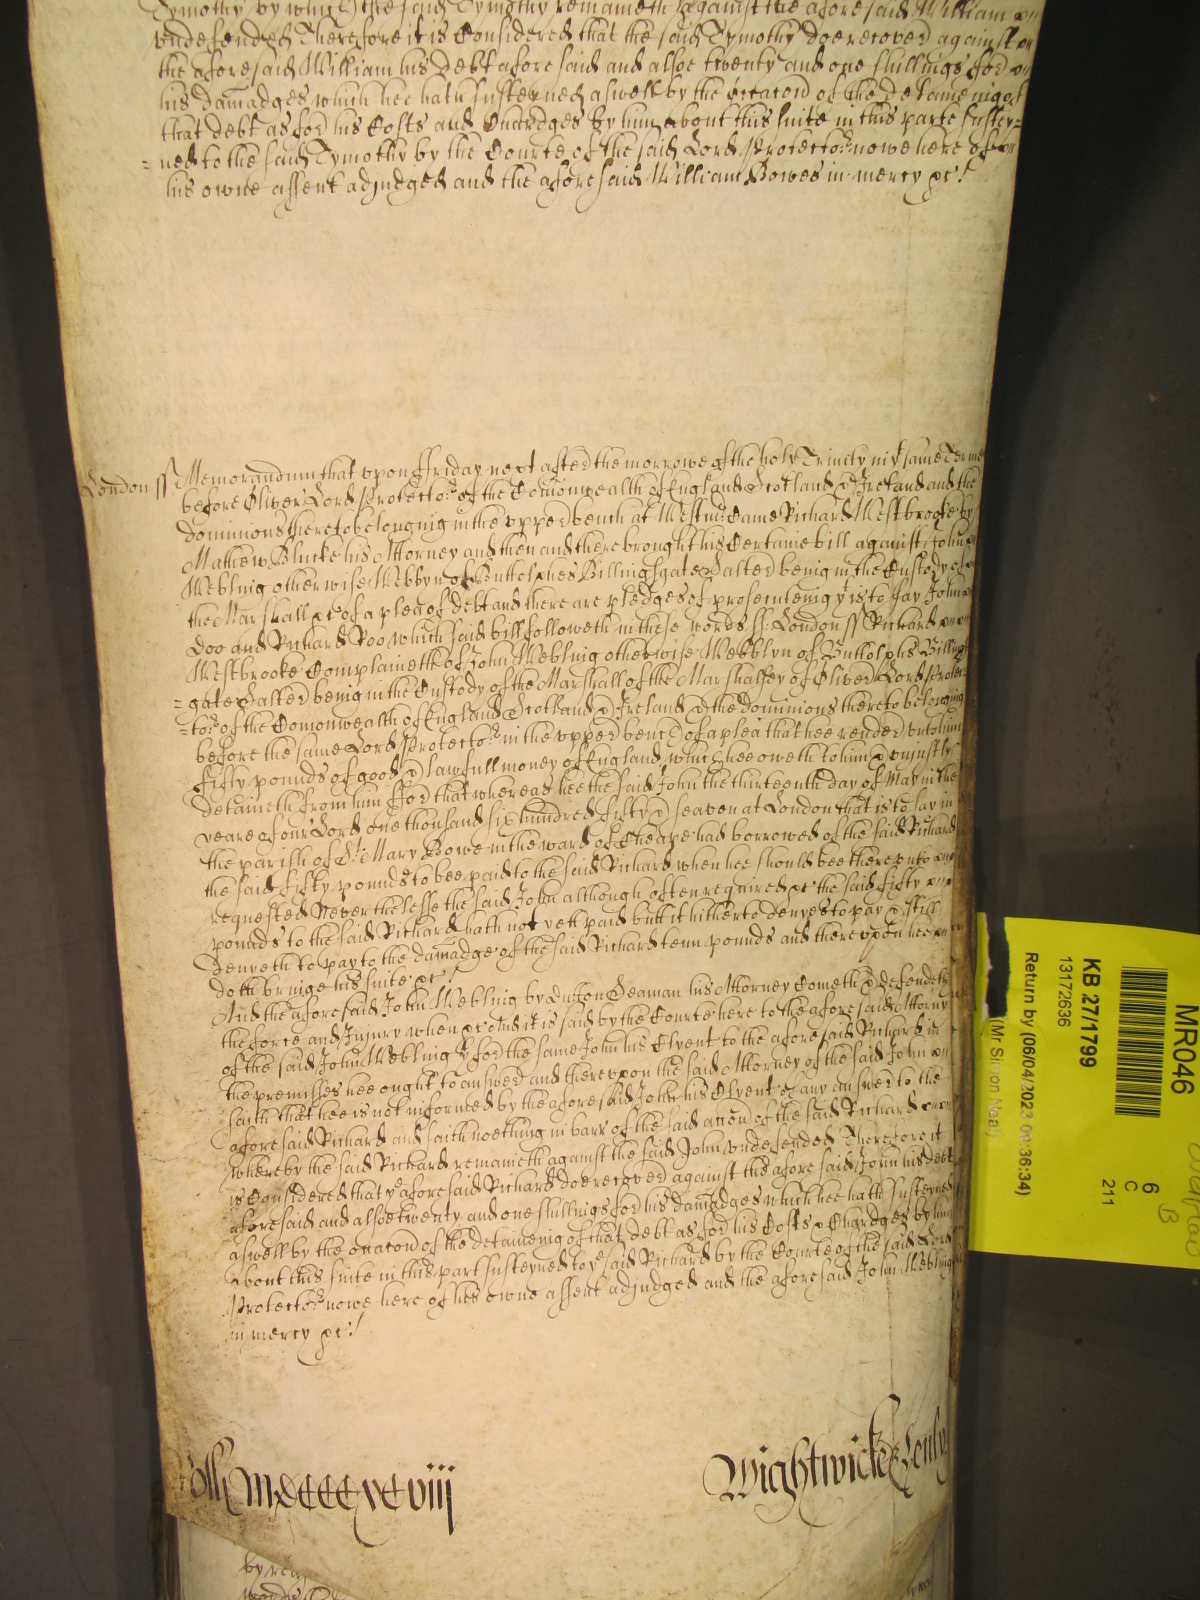 Tymothy by which the said Tymothy remaineth against the aforesaid William
vndefended Therefore it is Considered that the said Tymothy doe recover against
the aforesaid William his debt aforesaid and alsoe twenty and one shillings for
his damadges which hee hath susteyned aswell by the occacon of the deteineing of
that debt as for his Costs and Chardges by him about this suite in this parte sustey=
=ned to the said Tymothy by the Courte of the said Lord Protector nowe here of
his owne assent adjudged and the aforesaid William Bowes in mercy &c
London ss Memorandum that vpon ffriday next after the morrowe of the holy Trinity in ye same Terme
before Oliver Lord Protector of the Comonwealth of England Scotland & Ireland and the
dominions thereto belonging in the vpper bench at Westmr Came Richard Westbrooke by
Mathew Blucke his Attorney and then and there brought his Certaine bill against John
Webling otherwise Webbyn of Buttolphes Billingsgate Salter being in the Custody of
the Marshall &c of a plea of debt and there are pledges of prosecuteing yt is to say John
Doo and Richard Roo which said bill followeth in these words ss London ss Richard
Westbrooke Complaineth of John Webling otherwise Webblyn of Buttolphes Billings=
=gate Salter being in the Custody of the Marshall of the Marshalsey of Oliver Lord Protec=
=tor of the Comonwealth of England Scotland & Ireland & the dominions thereto belonging
before the same Lord Protector in the vpper bench of a plea that hee render vnto him
fifty pounds of good & lawfull money of England which hee oweth to him & vnjustly
detaineth from him ffor that whereas hee the said John the thirteenth day of May in the
yeare of our Lord one thousand six hundred fifty & seaven at London that is to say in
the parish of St Mary Bowe in the ward of Cheape had borrowed of the said Richard
the said fifty pounds to bee paid to the said Richard when hee should bee therevnto
requested Neverthelesse the said John although often required &c the said fifty
pounds to the said Richard hath not yett paid but it hitherto denyes to pay & still
denyeth to pay to the damadge of the said Richard tenn pounds and therevpon hee
doth bringe his suite &c
And the aforesaid John Webling by Dutton Seaman his Attorney Cometh & defendeth
the force and Injury when &c And it is said by the Courte here to the aforesaid Attorny
of the said John Webling yt for the same John his Clyent to the aforesaid Richard in
the premisses hee ought to answer and therevpon the said Attorney of the said John
saith that hee is not informed by the aforesaid John his Clyent of any answer to the
aforesaid Richard and saith noething in barr of the said accon of the said Richard
whereby the said Richard remaineth against the said John vndefended Therefore it
is Considered that ye aforesaid Richard doe recover against the aforesaid John his debt
aforesaid and alsoe twenty and one shillings for his damadges which hee hath susteyned
aswell by the occacon of the deteineing of that debt as for his Costs & Chardges by him
about this suite in this part susteyned to ye said Richard by the Courte of the said Lord
Protector nowe here of his owne assent adjudged and the aforesaid John Webling
in mercy &c
MDCCCCXCviii
Wightwicke
by rea
MR046
KB 27/1799
13172636
Return by (06/04/2023 09:36:34)
(Mr Simon Neal)
6
C
211